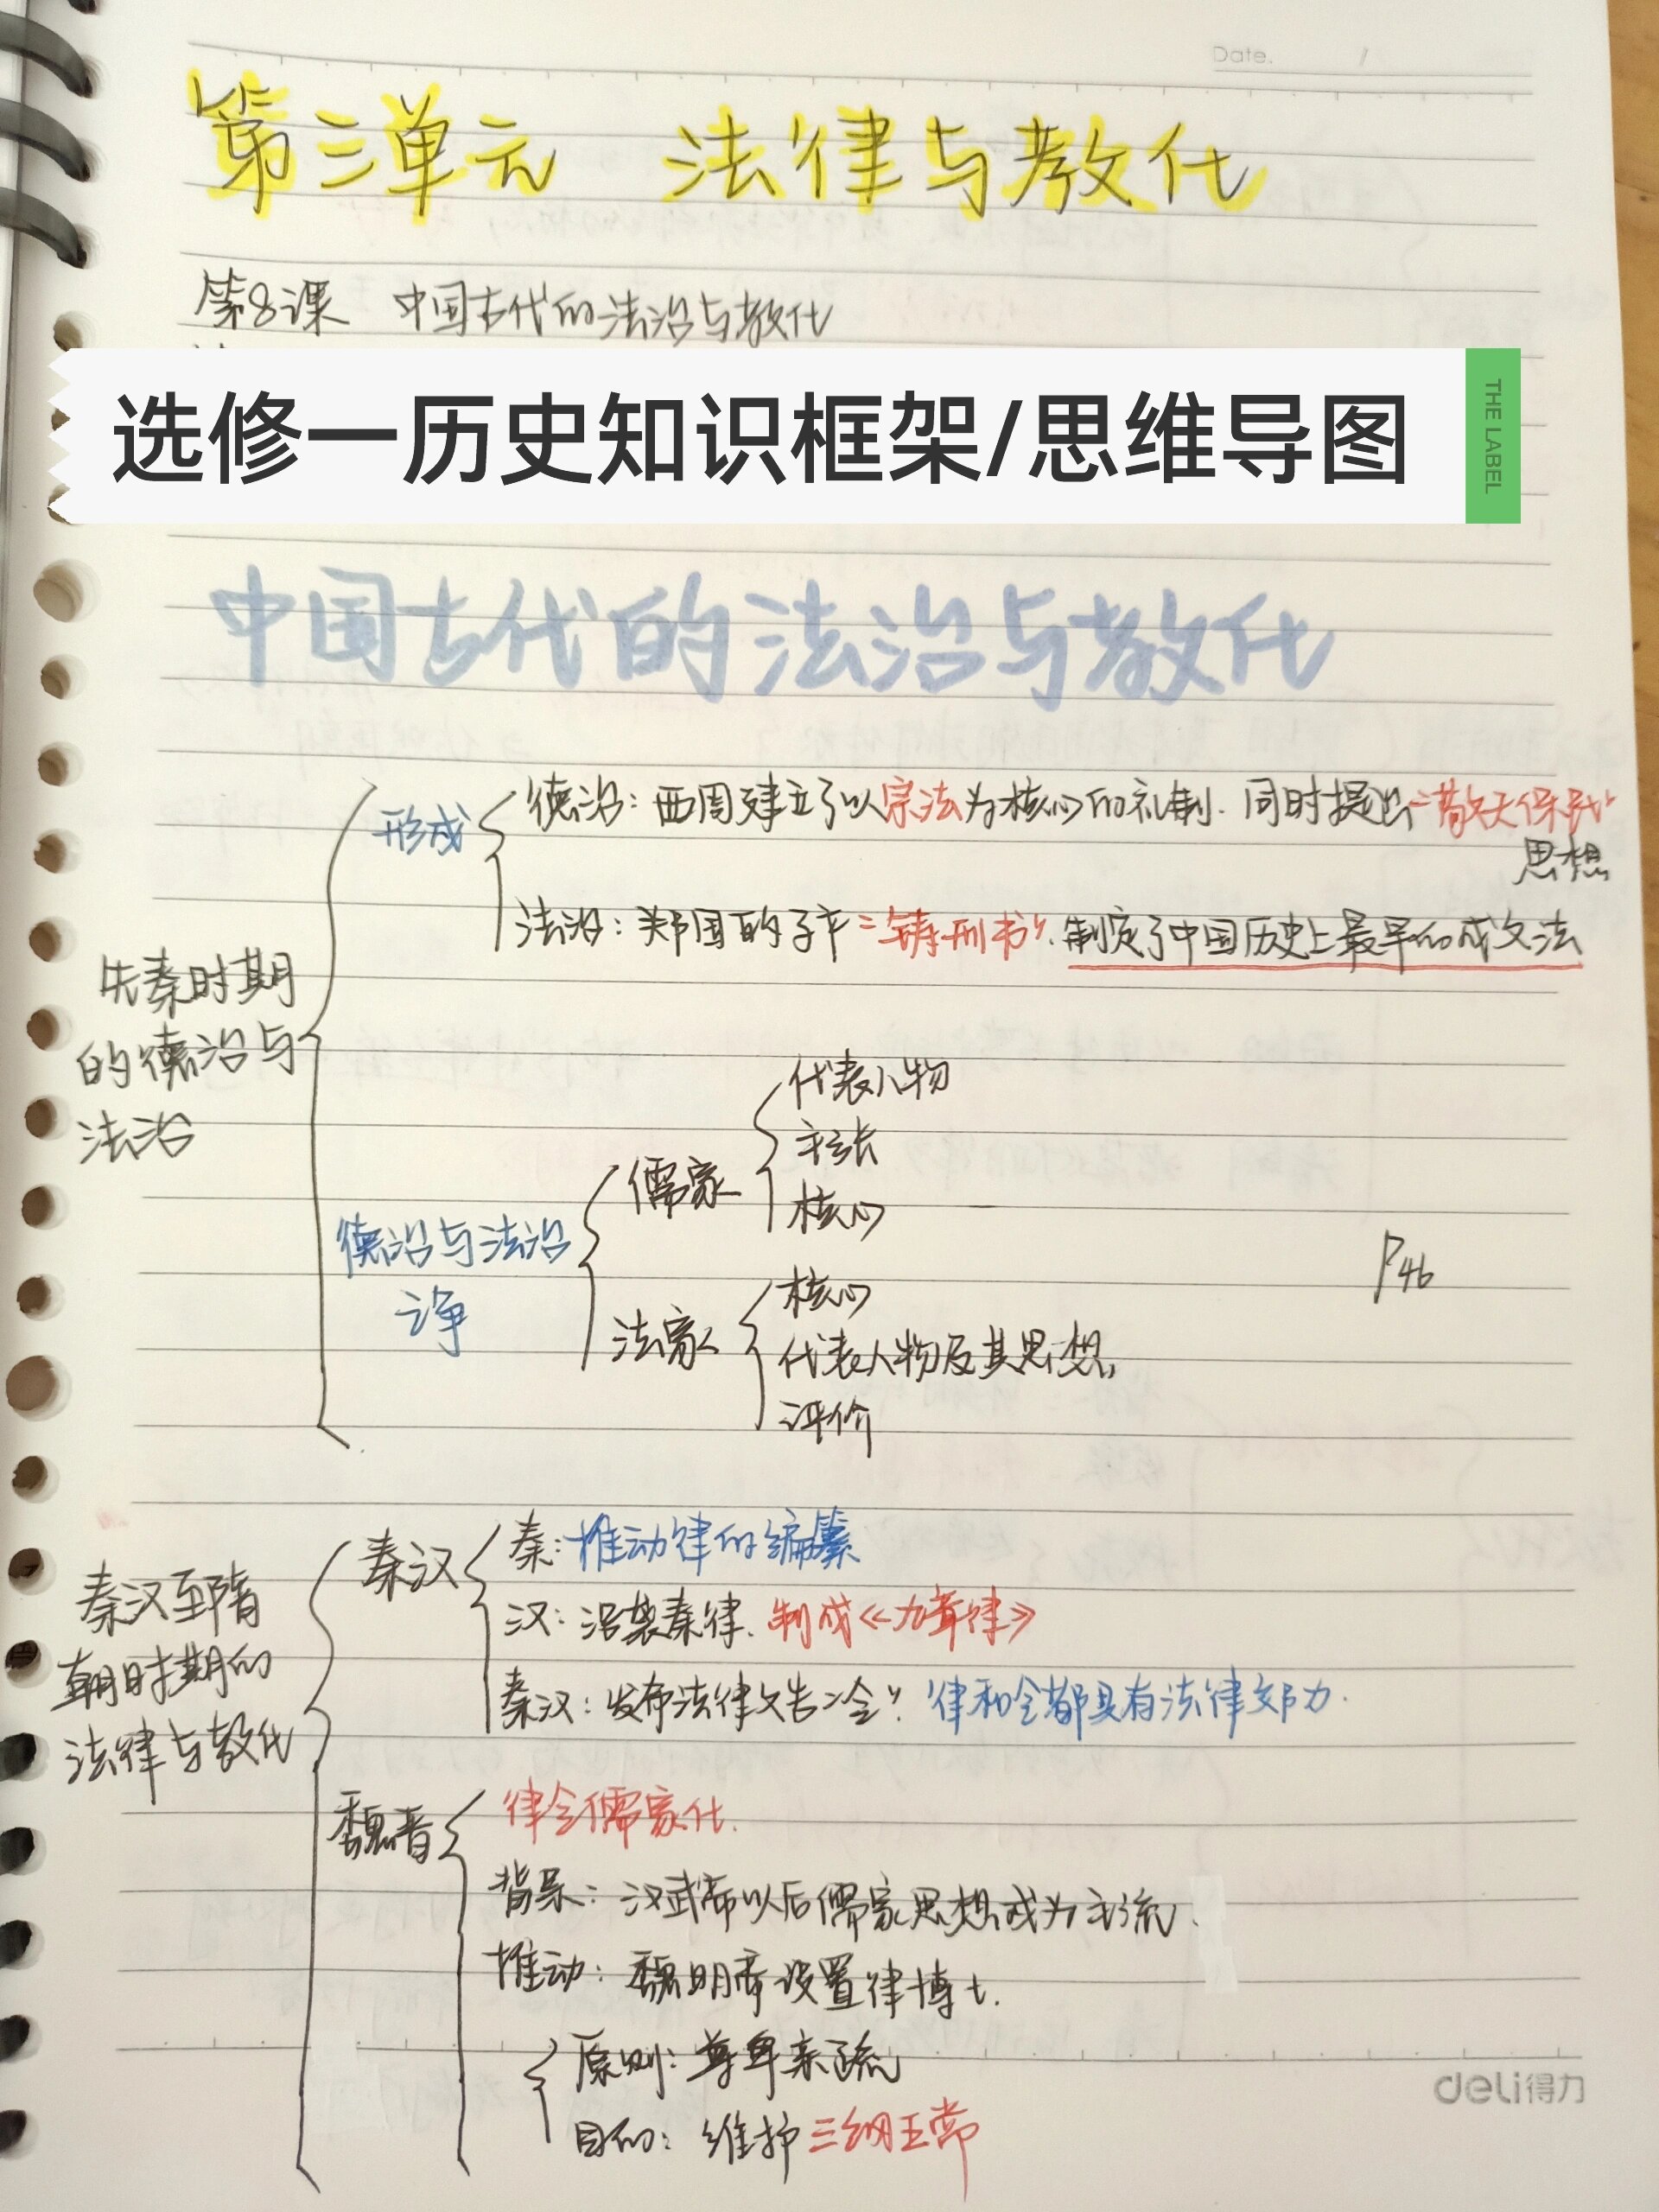 Date. /
第三单元 法律与教化
第8课 中国古代的法治与教化
选修一历史知识框架/思维导图
THE LABEL
中国古代的法治与教化
形成
德治：西周建立了以宗法为核心的礼制.同时提出“敬天保民”
思想
法治：郑国的子产“铸刑书”.制定了中国历史上最早的成文法
先秦时期
的德治与
法治
德治与法治
之争
儒家
代表人物
主张
核心
法家
核心
代表人物及其思想
评价
P46
秦汉至隋
朝时期的
法律与教化
秦汉
秦：推动律的编纂
汉：沿袭秦律.制成《九章律》
秦汉：发布法律文告“令”.律和令都具有法律效力.
魏晋
律令儒家化.
背景：汉武帝以后儒家思想成为主流.
推动：魏明帝设置律博士.
原则：尊卑亲疏
目的：维护三纲五常
deli得力